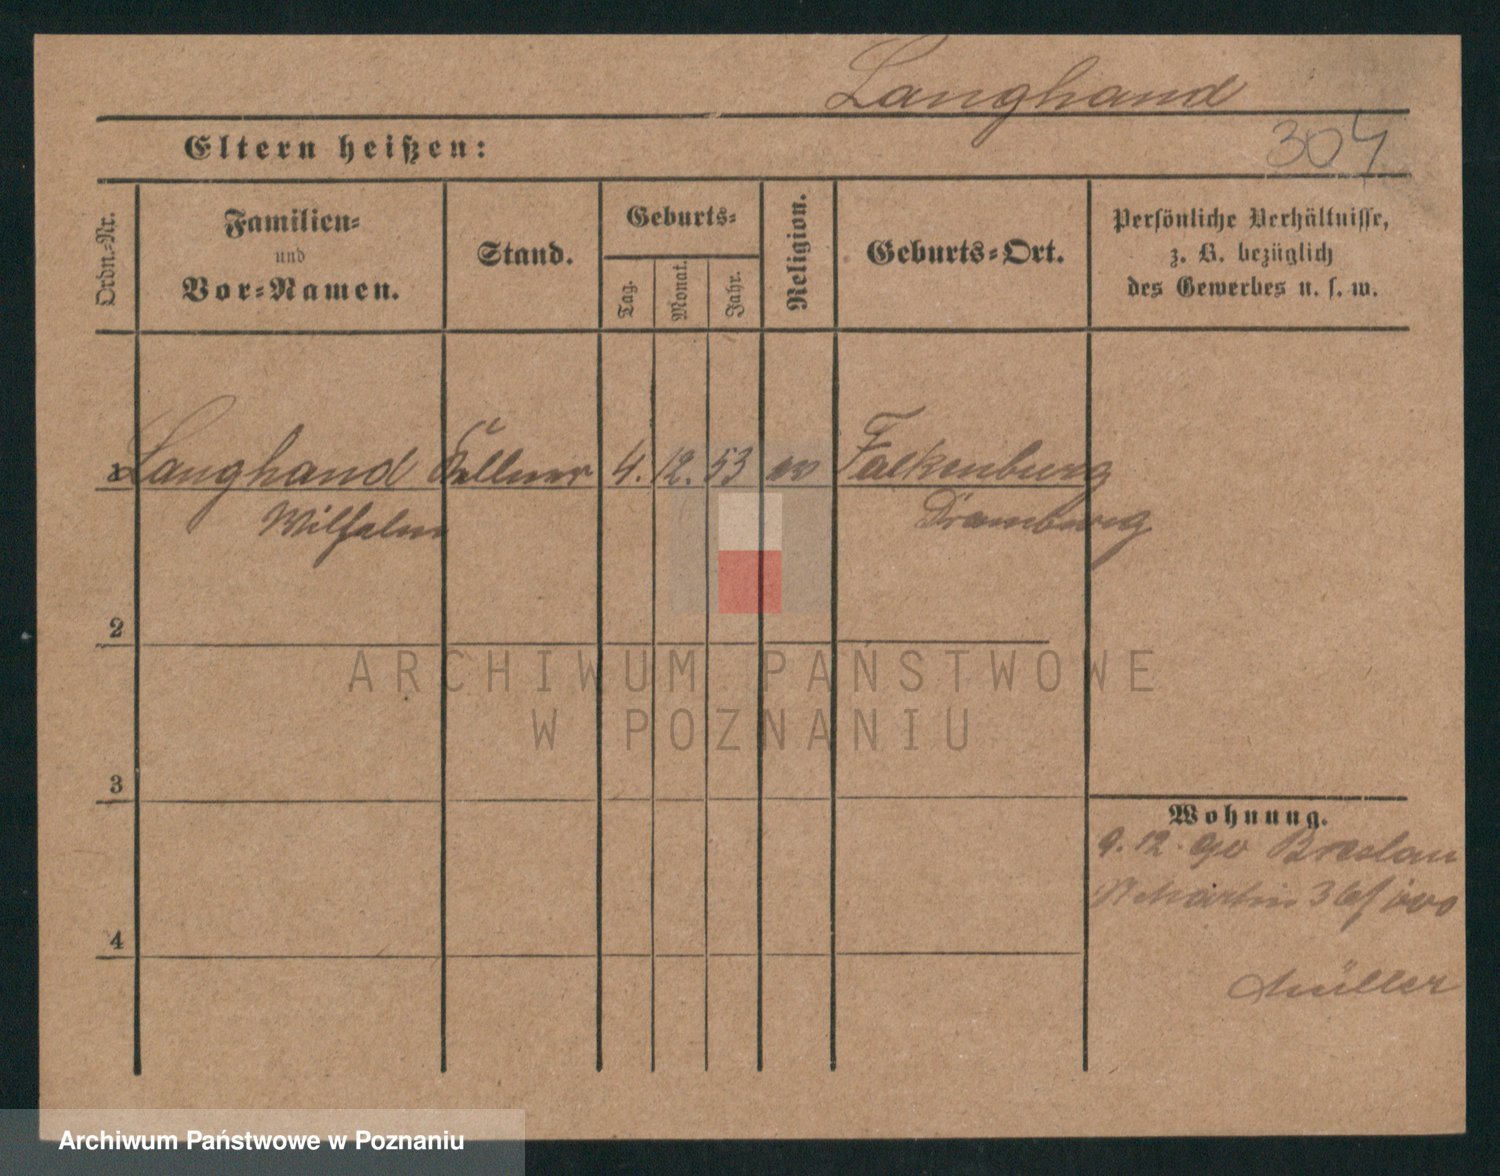 Langhand
304
Eltern heißen:
Ordn.-Nr.
Familien-
und
Vor-Namen.
Stand.
Geburts-
Tag.
Monat.
Jahr.
Religion.
Geburts-Ort.
Persönliche Verhältnisse,
z. B. bezüglich
des Gewerbes u. s. w.
1 Langhand Kellner 4. 12. 53 ev Falkenburg
Wilhelm Dramburg
2
3
4
Wohnung.
9. 12. 90 Breslau
St Martin 36/
Müller
ARCHIWUM PAŃSTWOWE
W POZNANIU
Archiwum Państwowe w Poznaniu